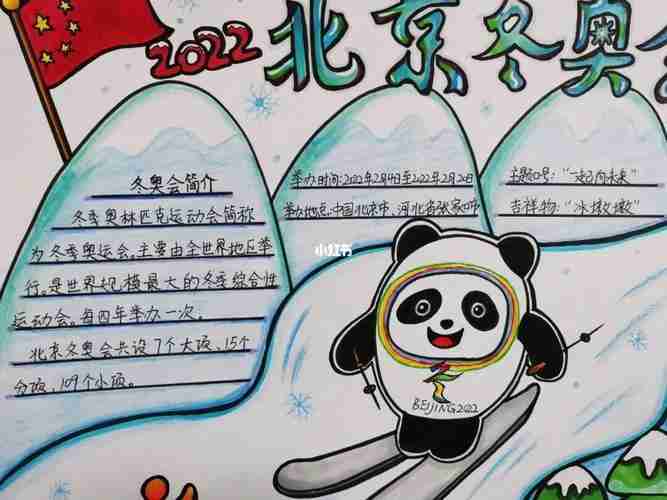 2022 北京冬奥
冬奥会简介
冬季奥林匹克运动会简称
为冬季奥运会。主要由全世界地区举
行。是世界规模最大的冬季综合性
运动会。每四年举办一次。
北京冬奥会共设7个大项、15个
分项、109个小项。
举办时间:2022年2月4日至2022年2月20日
举办地点:中国北京市、河北省张家口市
主题口号:“一起向未来”
吉祥物:“冰墩墩”
小红书
BEIJING2022